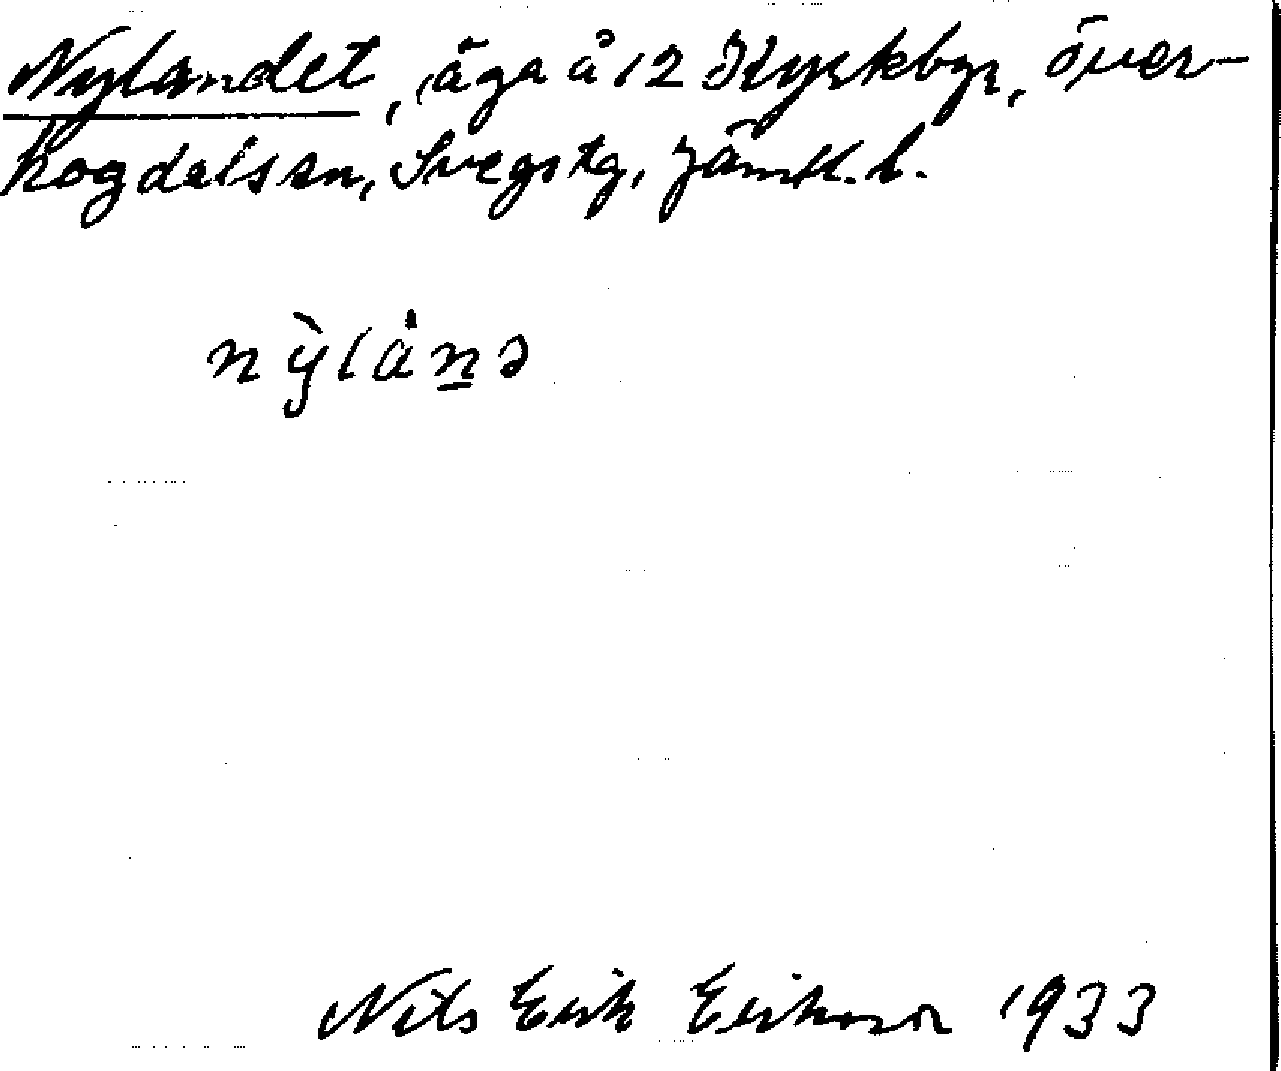 Nylandet, äga å 12 Kyrkbyn, Över-
hogdals sn, Svegs tg, Jämtl. l.
nỳlån̲ə
Nils Erik Erikson 1933